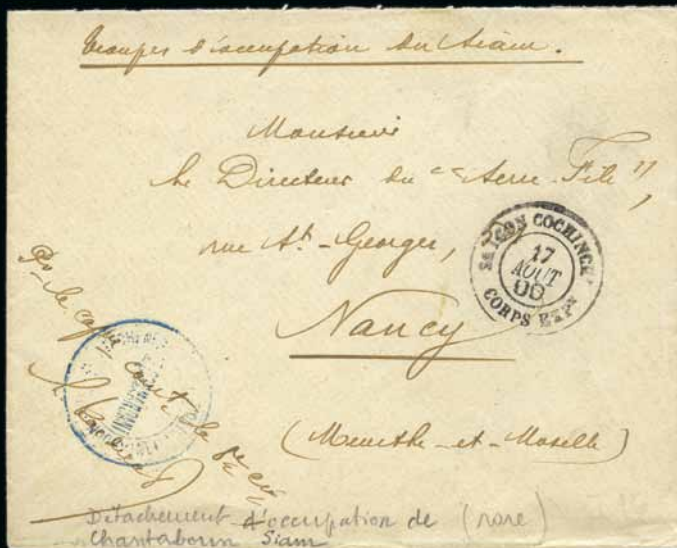 Troupes d'occupation du Siam.
Monsieur
le Directeur du "Serre-File",
rue St-Georges,
Nancy
(Meurthe-et-Moselle)
SAIGON COCHINCE
17
AOUT
00
CORPS EXPN
Pr le cape
Comt la
Détachement d'occupation de (rare)
Chantaboun Siam